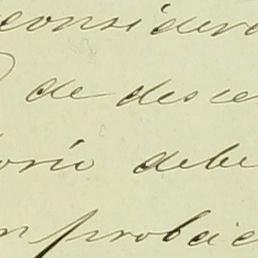 considera
de desce
orio debe
n probaci